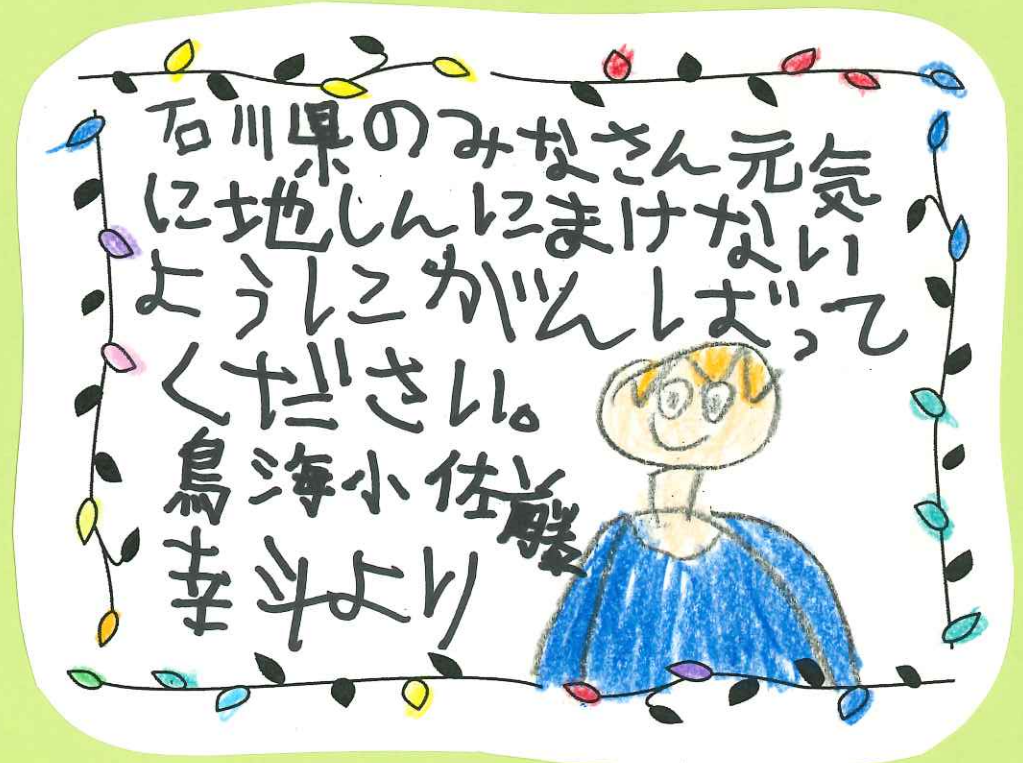 石川県のみなさん元気
に地しんにまけない
ようにがんばって
ください。
鳥海小佐藤
幸斗より